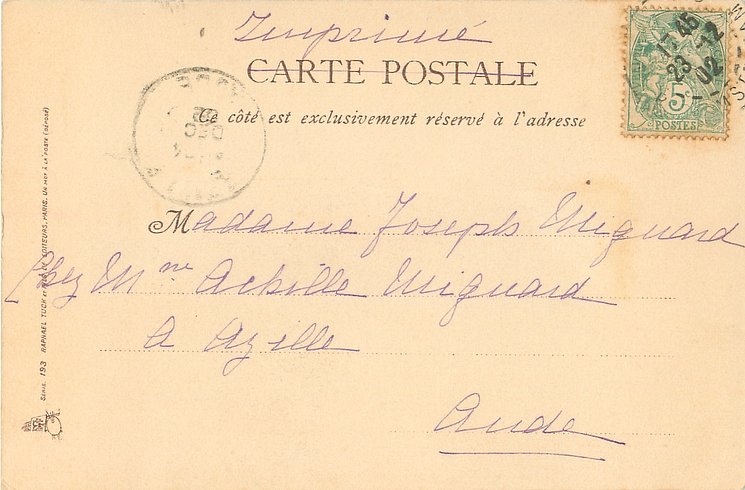 Imprimé
CARTE POSTALE
Ce côté est exclusivement réservé à l'adresse
5c
POSTES
17 45
23 -12
02
DEC
02
Madame Joseph Mignard
Chez Mme Achille Mignard
A Azille
Aude
SERIE 193 RAPHAEL TUCK et FILS LD EDITEURS, PARIS. UN MOT À LA POSTE (DÉPOSÉ)